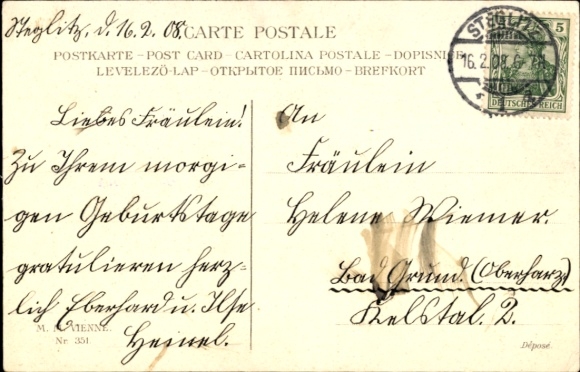 Steglitz, d. 16.2.08.
CARTE POSTALE
POSTKARTE – POST CARD – CARTOLINA POSTALE – DOPISNICE
LEVELEZŐ-LAP – ОТКРЫТОЕ ПИСЬМО – BREFKORT
STEGLITZ
16.2.08. 6-7N
5
DEUTSCHES REICH
Liebes Fräulein!
Zu Ihrem morgi-
gen Geburtstage
gratulieren herz-
lich Eberhard u. Ilse
Heinel.
M. M. VIENNE.
Nr. 351
An
Fräulein
Helene Wiemer.
Bad Grund. (Oberharz)
Kelstal. 2.
Déposé.